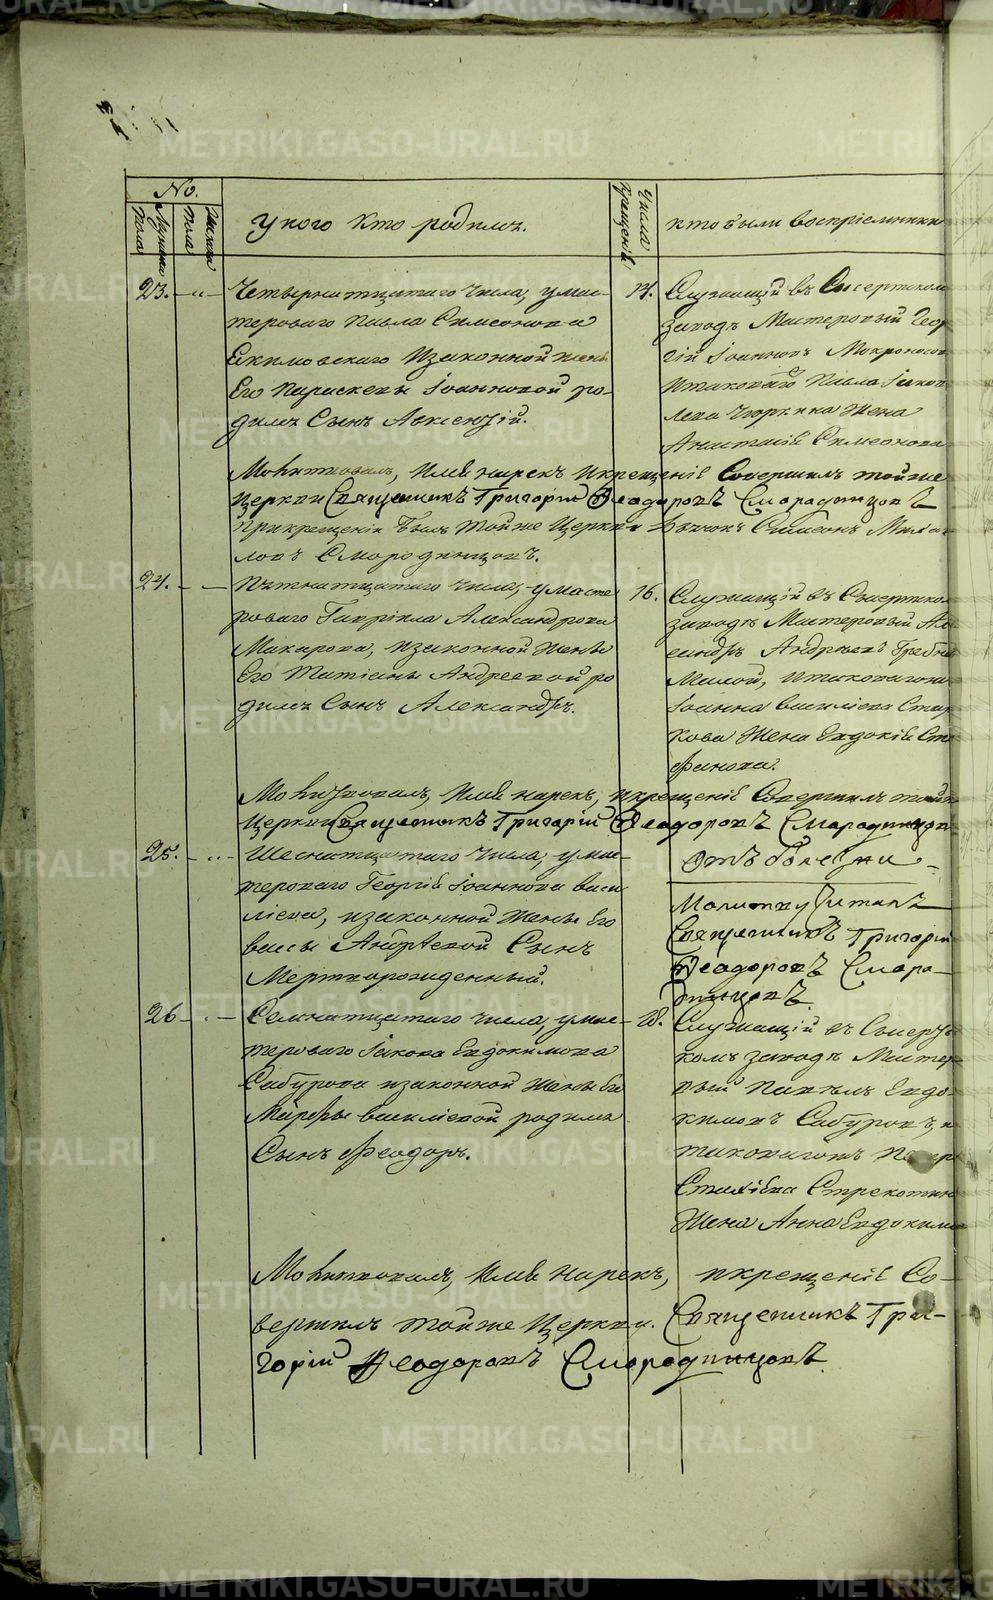 №.
Мужеска пола
Женска пола
У кого кто родился.
Числа крещенія
Кто были воспріемники
23. — „ —
Четырнатцатаго числа, у мас-
тероваго Павла Симеонова
Екимовскаго и законной жены
его Параскевы Іоанновой ро-
дился сынъ Авксентій.
Служащій въ Сысертском
заводѣ мастеровый Геор
гій Іоанновъ Мокроносов
и таковаго Павла Іаков
лева Чюркина жена
Анастасія Симеонова
Молитвовалъ, имя нарекъ и крещеніе совершилъ тойже
церкви Священникъ Григорій Феодоровъ Смородинцовъ
При крещеніи былъ тойже церкви дьячокъ Симеонъ
Смородинцовъ.
24. — —
Пятнатцатаго числа, у масте
роваго Гавріила Александрова
Макарова, и законной жены
его Татіаны Андреевой ро
дился сынъ Александръ.
16.
Служащій въ Сысертско
заводѣ мастеровый Ал
ксандръ Андрѣевъ
и таковагожъ
Іоанна Василіева Стар
кова жена Евдокія Сте
фанова.
Молитвовалъ, имя нарекъ, и крещеніе совершилъ тойже
церкви Священникъ Григорій Феодоровъ Смородинцовъ
25. — „ —
Шеснатцатаго числа, у мас-
тероваго Георгія Іоаннова Васи
ліева, и законной жены его
Вассы Андреевой сынъ
мертворожденный.
отъ болезни
Молитву читалъ
Священникъ Григорій
Феодоровъ Сморо-
динцовъ
26 — „ —
Семнатцатаго числа, у мас-
тероваго Іакова Евдокимова
Сабурова и законной жены его
Марфы Василіевой родился
сынъ Феодоръ.
18.
Служащій въ Сысерт
комъ заводѣ мастер
вый Павелъ Евдо-
кимовъ Сабуровъ, и
таковагожъ
Стрекотин
жена Анна Евдокимо
Молитвовалъ, имя нарекъ, и крещеніе со-
вершилъ тойже церкви. Священникъ Гри-
горій Феодоровъ Смородинцовъ
METRIKI.GASO-URAL.RU